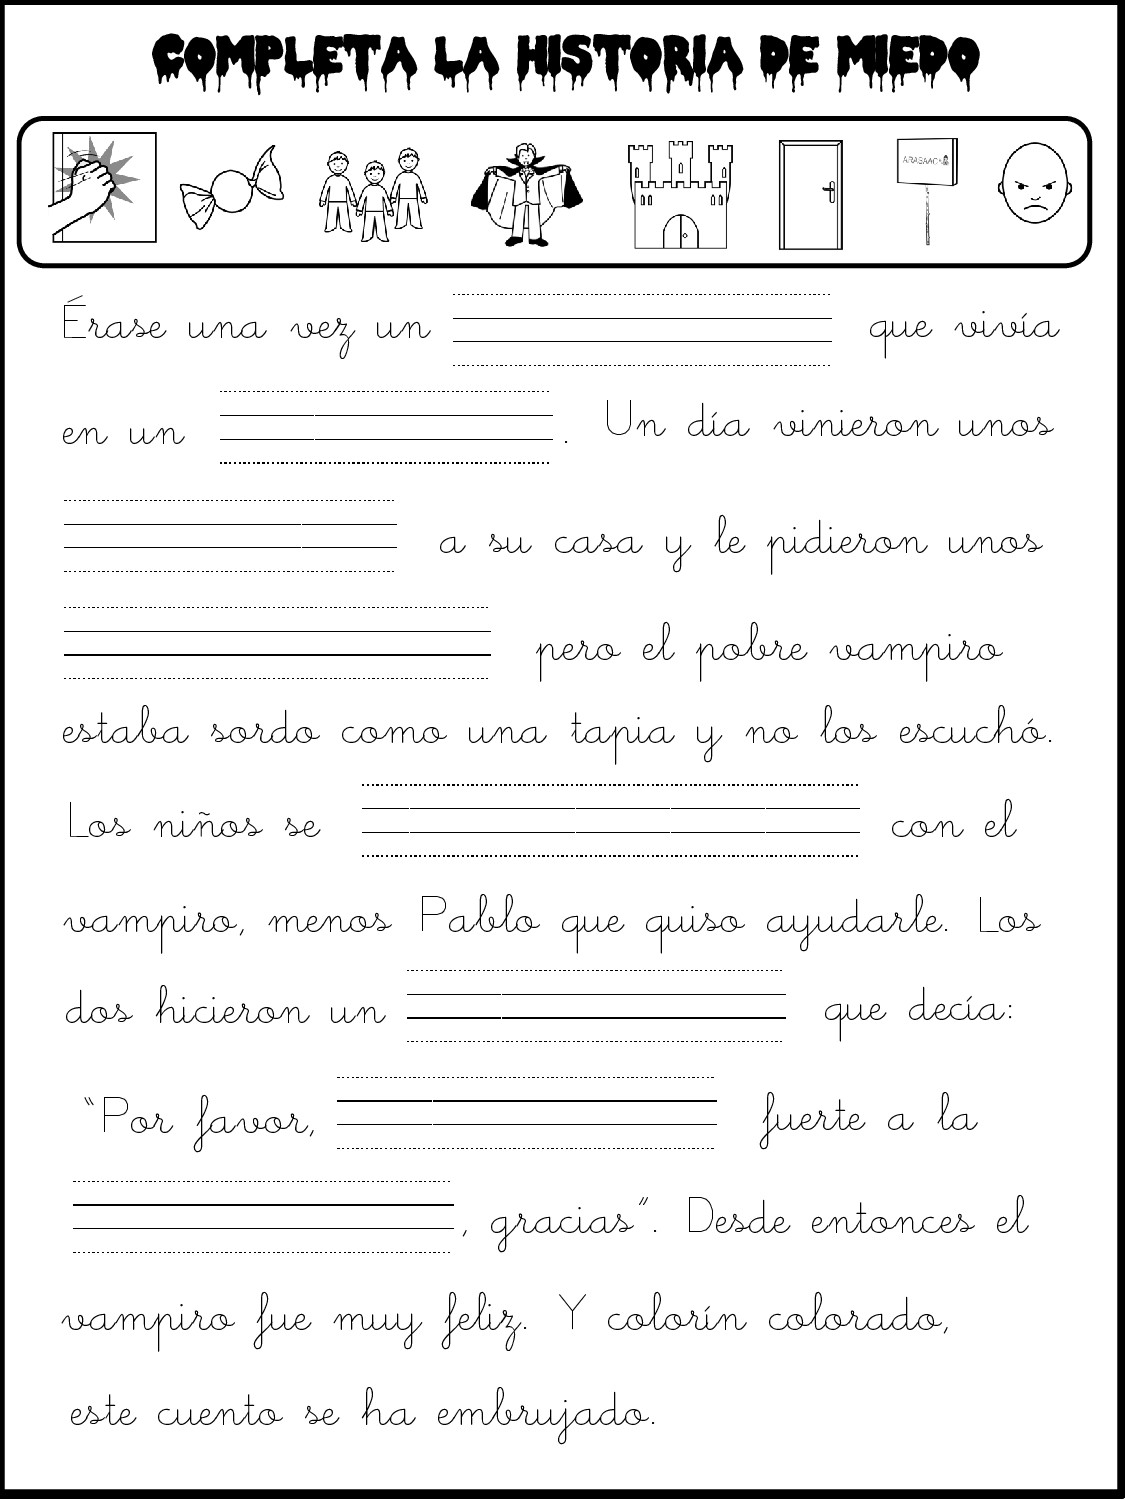 COMPLETA LA HISTORIA DE MIEDO
ARASAAC
Érase una vez un que vivía
en un . Un día vinieron unos
a su casa y le pidieron unos
pero el pobre vampiro
estaba sordo como una tapia y no los escuchó.
Los niños se con el
vampiro, menos Pablo que quiso ayudarle. Los
dos hicieron un que decía:
“Por favor, fuerte a la
, gracias”. Desde entonces el
vampiro fue muy feliz. Y colorín colorado,
este cuento se ha embrujado.